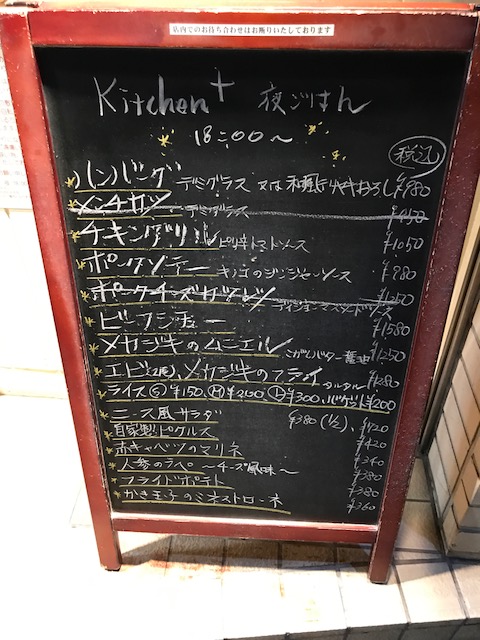 店内でのお待ち合わせはお断りいたしております
Kitchen+ 夜ごはん
18:00〜
税込
ハンバーグ デミグラス 又は 和風おろし ¥980
メンチカツ デミグラス ¥950
チキングリル ピリ辛トマトソース ¥1050
ポークソテー キノコのジンジャーソース ¥980
ポークチーズカツレツ ディジョンマスタードソース ¥1250
ビーフシチュー ¥1580
メカジキのムニエル こがしバター醤油 ¥1250
エビ(2尾)、メカジキのフライ タルタル ¥1280
ライス Ⓢ¥150、Ⓜ¥200、Ⓛ¥300、バゲット¥200
ニース風サラダ ¥380(1/2)、¥720
自家製ピクルス ¥420
赤キャベツのマリネ ¥340
人参のラペ 〜チーズ風味〜 ¥380
フライドポテト ¥380
かき玉子のミネストローネ ¥360